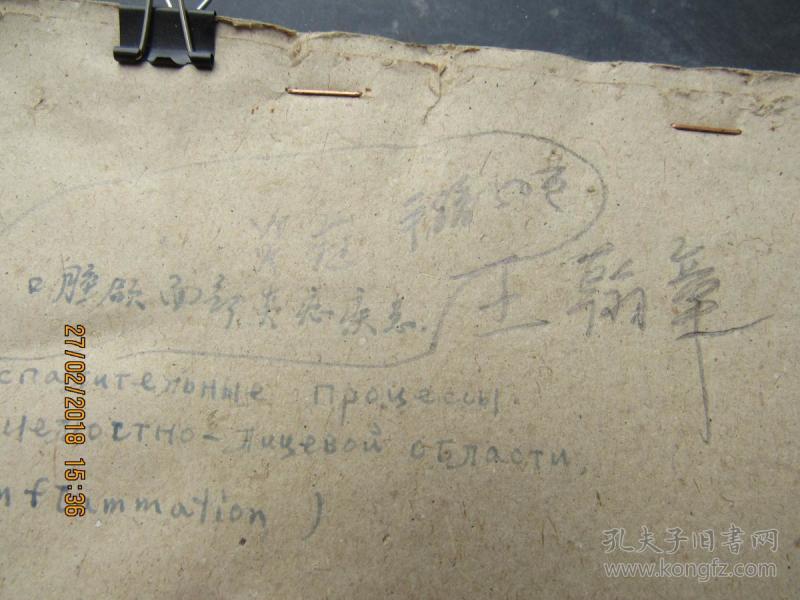 口腔颌面部炎症疾患.
王翰章
спалительные процессы
челюстно-лицевой области,
nflammation )
27/02/2018 15:36
孔夫子旧书网
www.kongfz.com